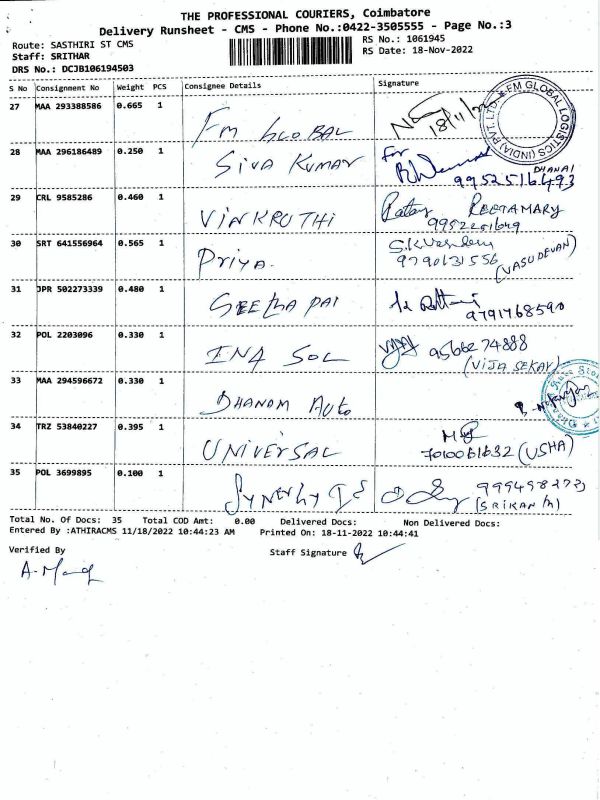 THE PROFESSIONAL COURIERS, Coimbatore
Delivery Runsheet - CMS - Phone No.:0422-3505555 - Page No.:3
Route: SASTHIRI ST CMS
RS No.: 1061945
Staff: SRITHAR
RS Date: 18-Nov-2022
DRS No.: DCJB106194503
S No Consignment No Weight PCS Consignee Details Signature
27 MAA 293388586 0.665 1 FM GLOBAL 18/11/22
FM GLOBAL LOGISTICS (INDIA) PVT. LTD.
28 MAA 296186489 0.250 1 SIVA KUMAR for
DHANAI
9952516493
29 CRL 9585286 0.460 1 VINKRUTHI REETAMARY
30 SRT 641556964 0.565 1 Priya. S.K.Vasudevan
9790131556 (VASUDEVAN)
31 JPR 502273339 0.480 1 SEETHA PAI
9791768590
32 POL 2203096 0.330 1 INA SOL 9566274888
(VIJA SEKAR)
33 MAA 294596672 0.330 1 DHANAM AUTO
34 TRZ 53840227 0.395 1 UNIVERSAL
7010061632 (USHA)
35 POL 3699895 0.100 1 SYNERGY
(SRIKANTH)
Total No. Of Docs: 35 Total COD Amt: 0.00 Delivered Docs: Non Delivered Docs:
Entered By :ATHIRACMS 11/18/2022 10:44:23 AM Printed On: 18-11-2022 10:44:41
Verified By Staff Signature